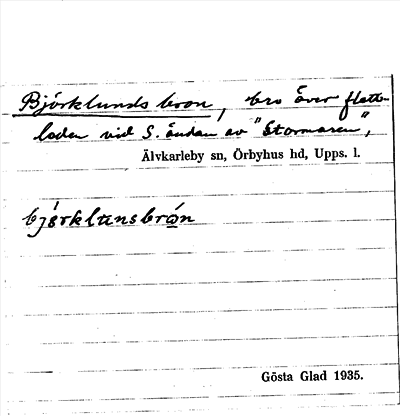 Björklundsbron, bro över flott-
leden vid S. ändan av "Stormaren",
Älvkarleby sn, Örbyhus hd, Upps. l.
bjö́rklunsbrǿn
Gösta Glad 1935.